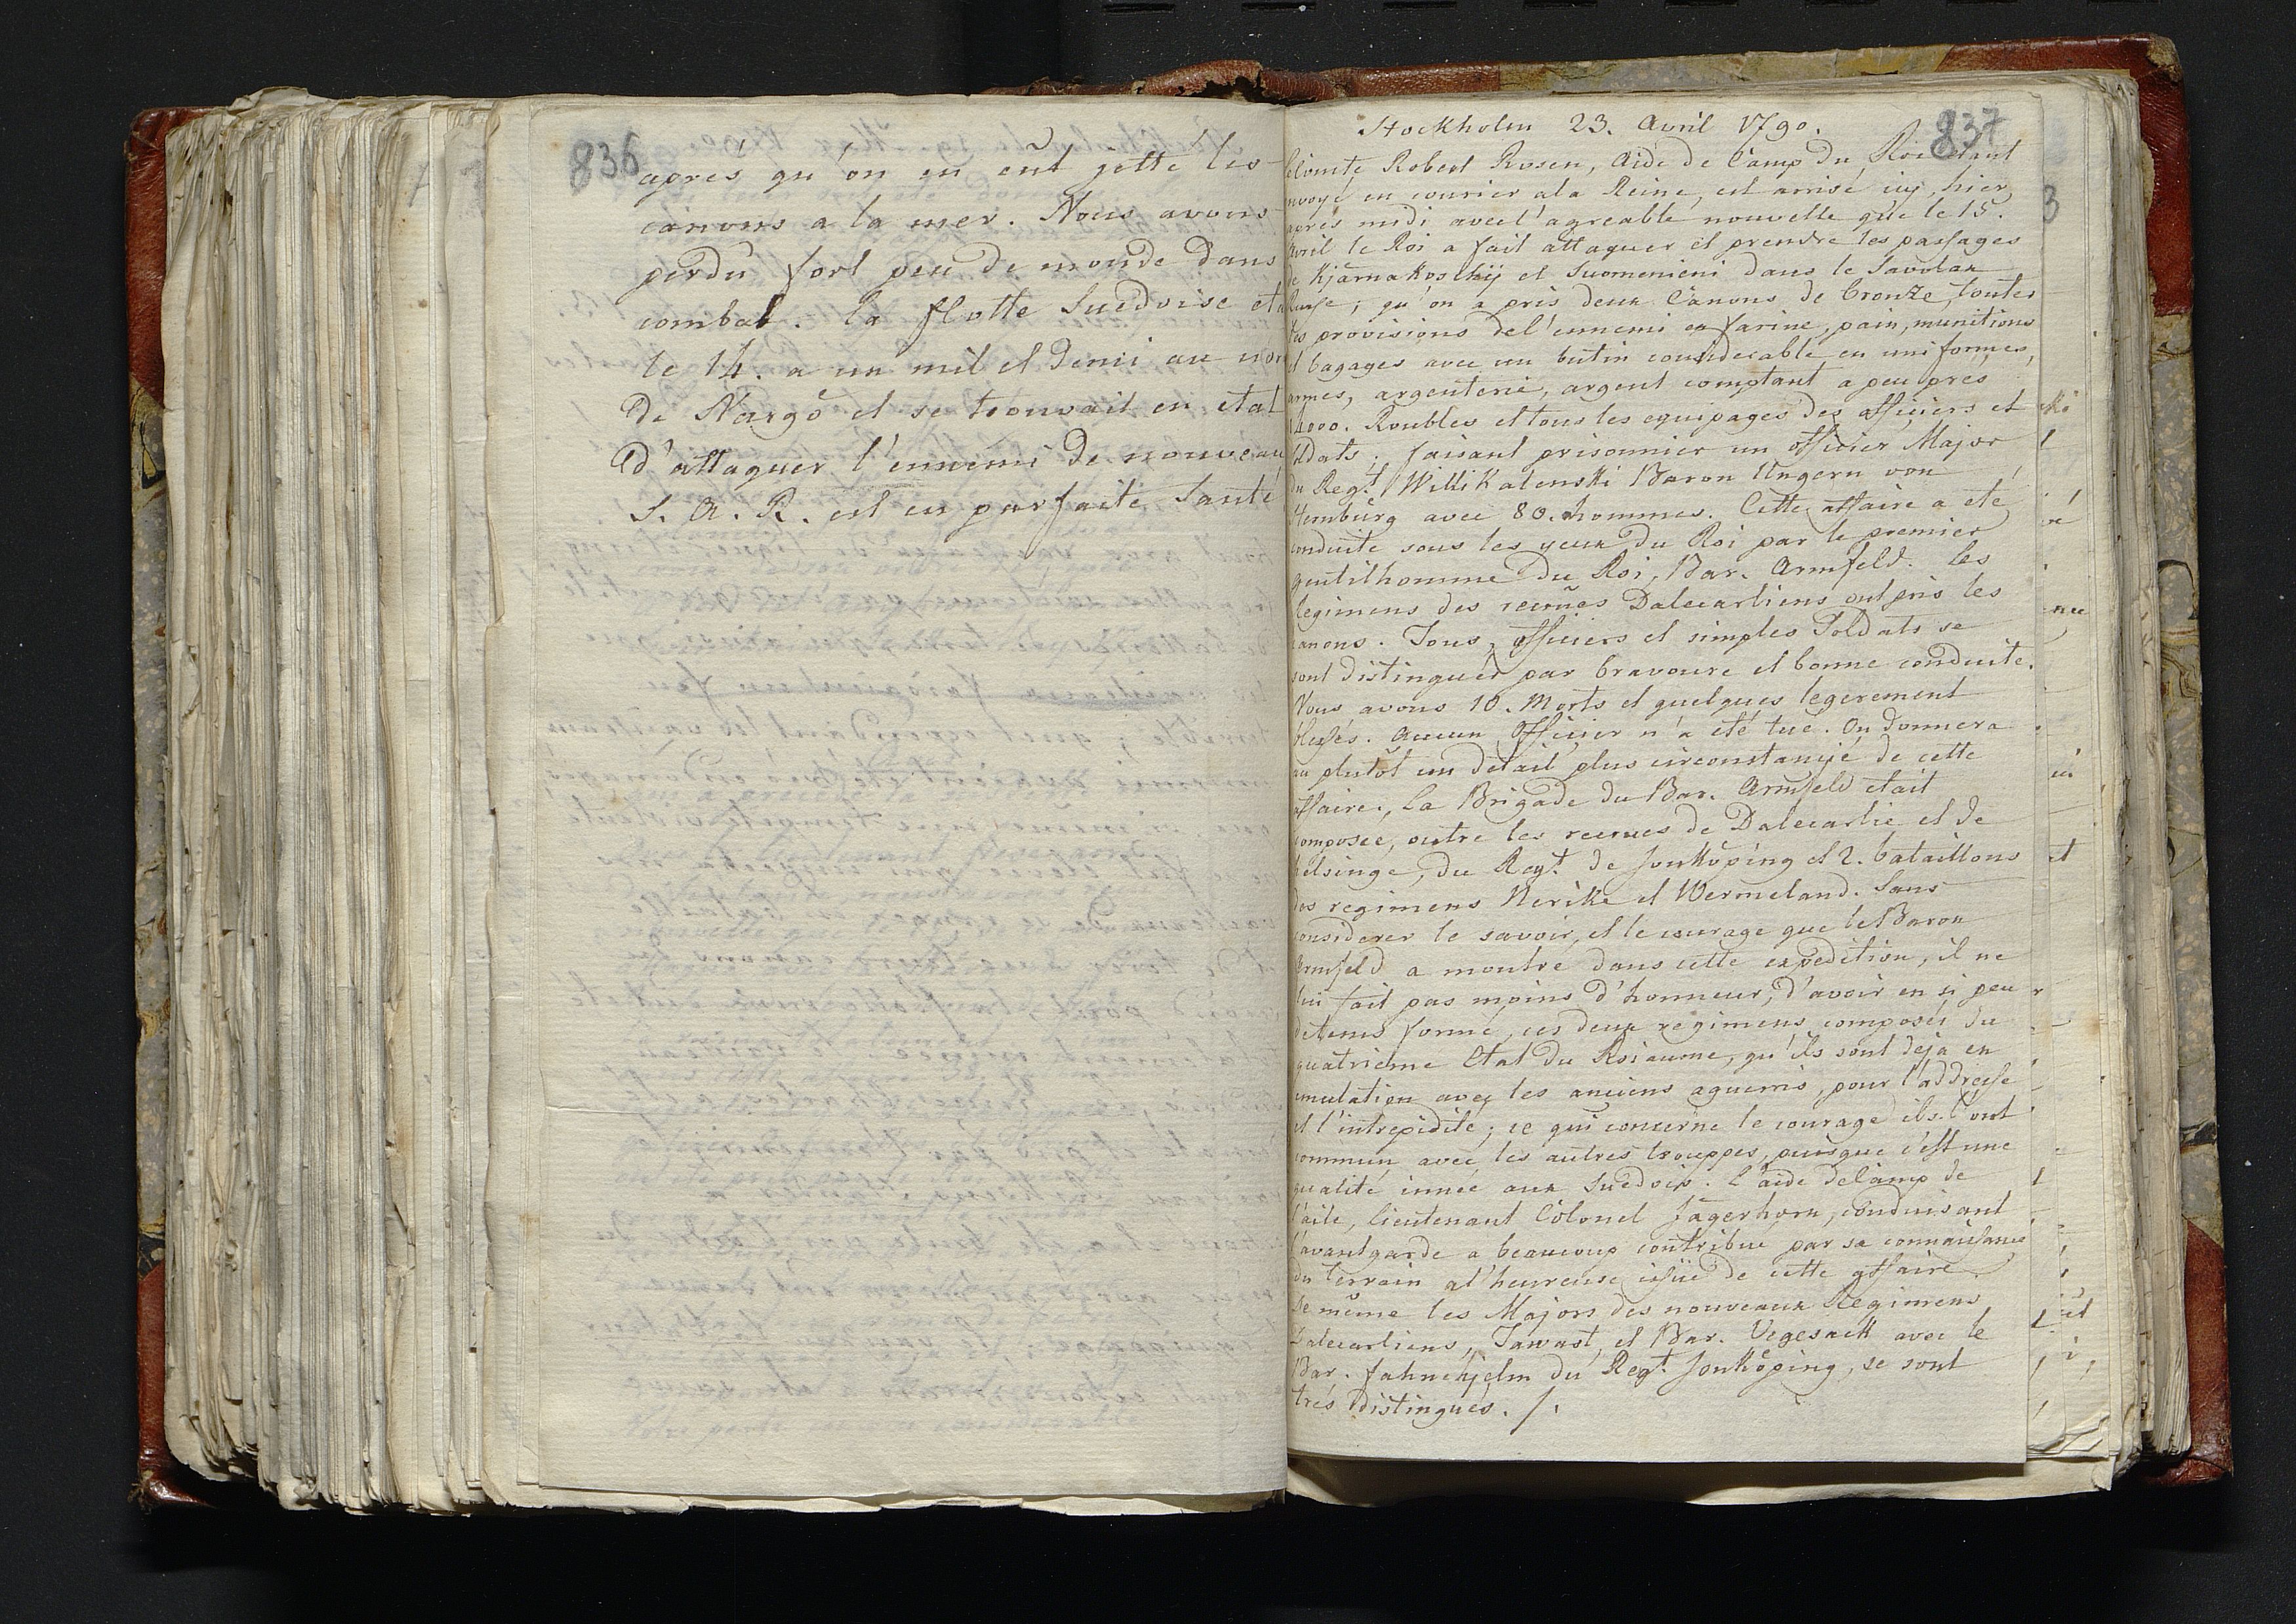 836
après qu'on en eut jetté les
canons a la mer. Nous avons
perdu fort peu de monde dans
combat. la flotte Suedoise eta
le 14. a un mil et demi au nor
de Nargö et se trouvait en etat
d'attaquer l'ennemi de nouveau
S. A. R. est en parfaite Santé
837
Stockholm 23. Avril 1790.
le Comte Robert Rosen, Aide de Camp du Roi etant
nvoyé en courier a la Reine, est arrivé icy, hier
après midi avec l'agreable nouvelle que le 15.
Avril le Roi a fait attaquer et prendre les passages
de Kjärnakoskij et Suomenieni dans le Savolax
Russe; qu'on a pris deux Canons de bronze, toutes
les provisions de l'ennemi en farine, pain, munitions
et bagages avec un butin considerable en uniformes,
armes, argenterie, argent comptant a peu près
14000. Roubles et tous les equipages des officiers et
oldats. faisant prisonnier un officier Major
du Regt. Willikalenski Baron Ungern von
Sternburg avec 80. hommes. Cette affaire a eté
conduite sous les yeux du Roi par le premier
gentilhomme du Roi, Bar. Armfeld. les
Regimens des recrües Dalecarliens ont pris les
canons. Tous, officiers et simples Soldats se
sont distingués par bravoure et bonne conduite.
Nous avons 10. Morts et quelques legerement
blessés. Aucun Officier n'a été tué. On donnera
au plutôt un détail plus circonstancjé de cette
affaire. La Brigade du Bar. Armfeld etait
composée, outre les recrues de Dalecarlie et de
helsinge, du Regt. de Jonköping et 2. bataillons
des regimens Nerike et Wermeland. Sans
considerer le savoir et le courage que le Baron
Armfeld a montré dans cette expedition, il ne
lui fait pas moins d'honneur, d'avoir en si peu
de tems formé, ces deux regimens composés du
quatrieme Etat du Roiaume, qu'ils sont deja en
emulation avec les anciens aguerris, pour l'addresse
et l'intrepidité; ce qui concerne le courage ils l'ont
commun avec les autres trouppes, puisque c'est une
qualité innée aux Suedois. L'aide de Camp de
l'aile, lieutenant Colonel Jägerhorn, conduisant
l'avantgarde a beaucoup contribué par sa connaissance
du terrain a l'heureuse issüe de cette affaire.
De même les Majors des nouveaux Regimens
Dalecarliens, Tawast, et Bar. Vegesack avec le
Bar. fahnehjelm du Regt. Jonköping, se sont
très distingués. /.